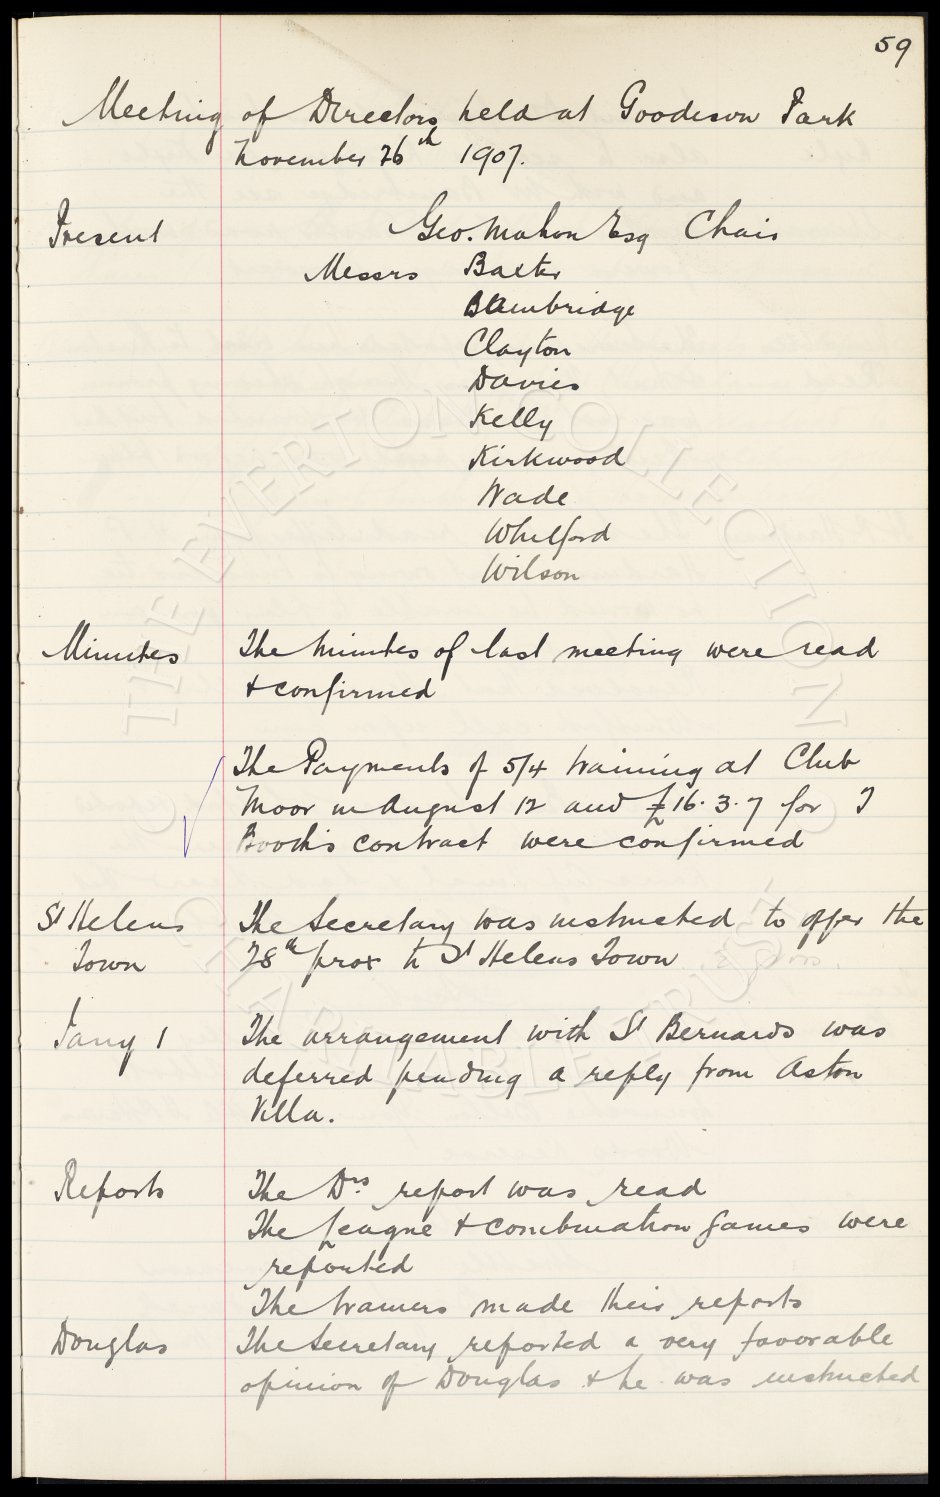 59
Meeting of Directors held at Goodison Park
November 26th 1907.
Present Geo. Mahon Esq Chair
Messrs Baxter
Bainbridge
Clayton
Davies
Kelly
Kirkwood
Wade
Whitford
Wilson
Minutes The Minutes of last meeting were read
& confirmed
The Payments of 5/4 training at Club
Moor in August 12 and £16.3.7 for J
Booth's contract were confirmed
St Helens The Secretary was instructed to offer the
Town 28th prox to St Helens Town
Jany 1 The arrangement with St Bernards was
deferred pending a reply from Aston
Villa.
Reports The Drs report was read
The League & combination games were
reported
The trainers made their reports
Douglas The Secretary reported a very favorable
opinion of Douglas & he was instructed
THE EVERTON COLLECTION
CHARITABLE TRUST